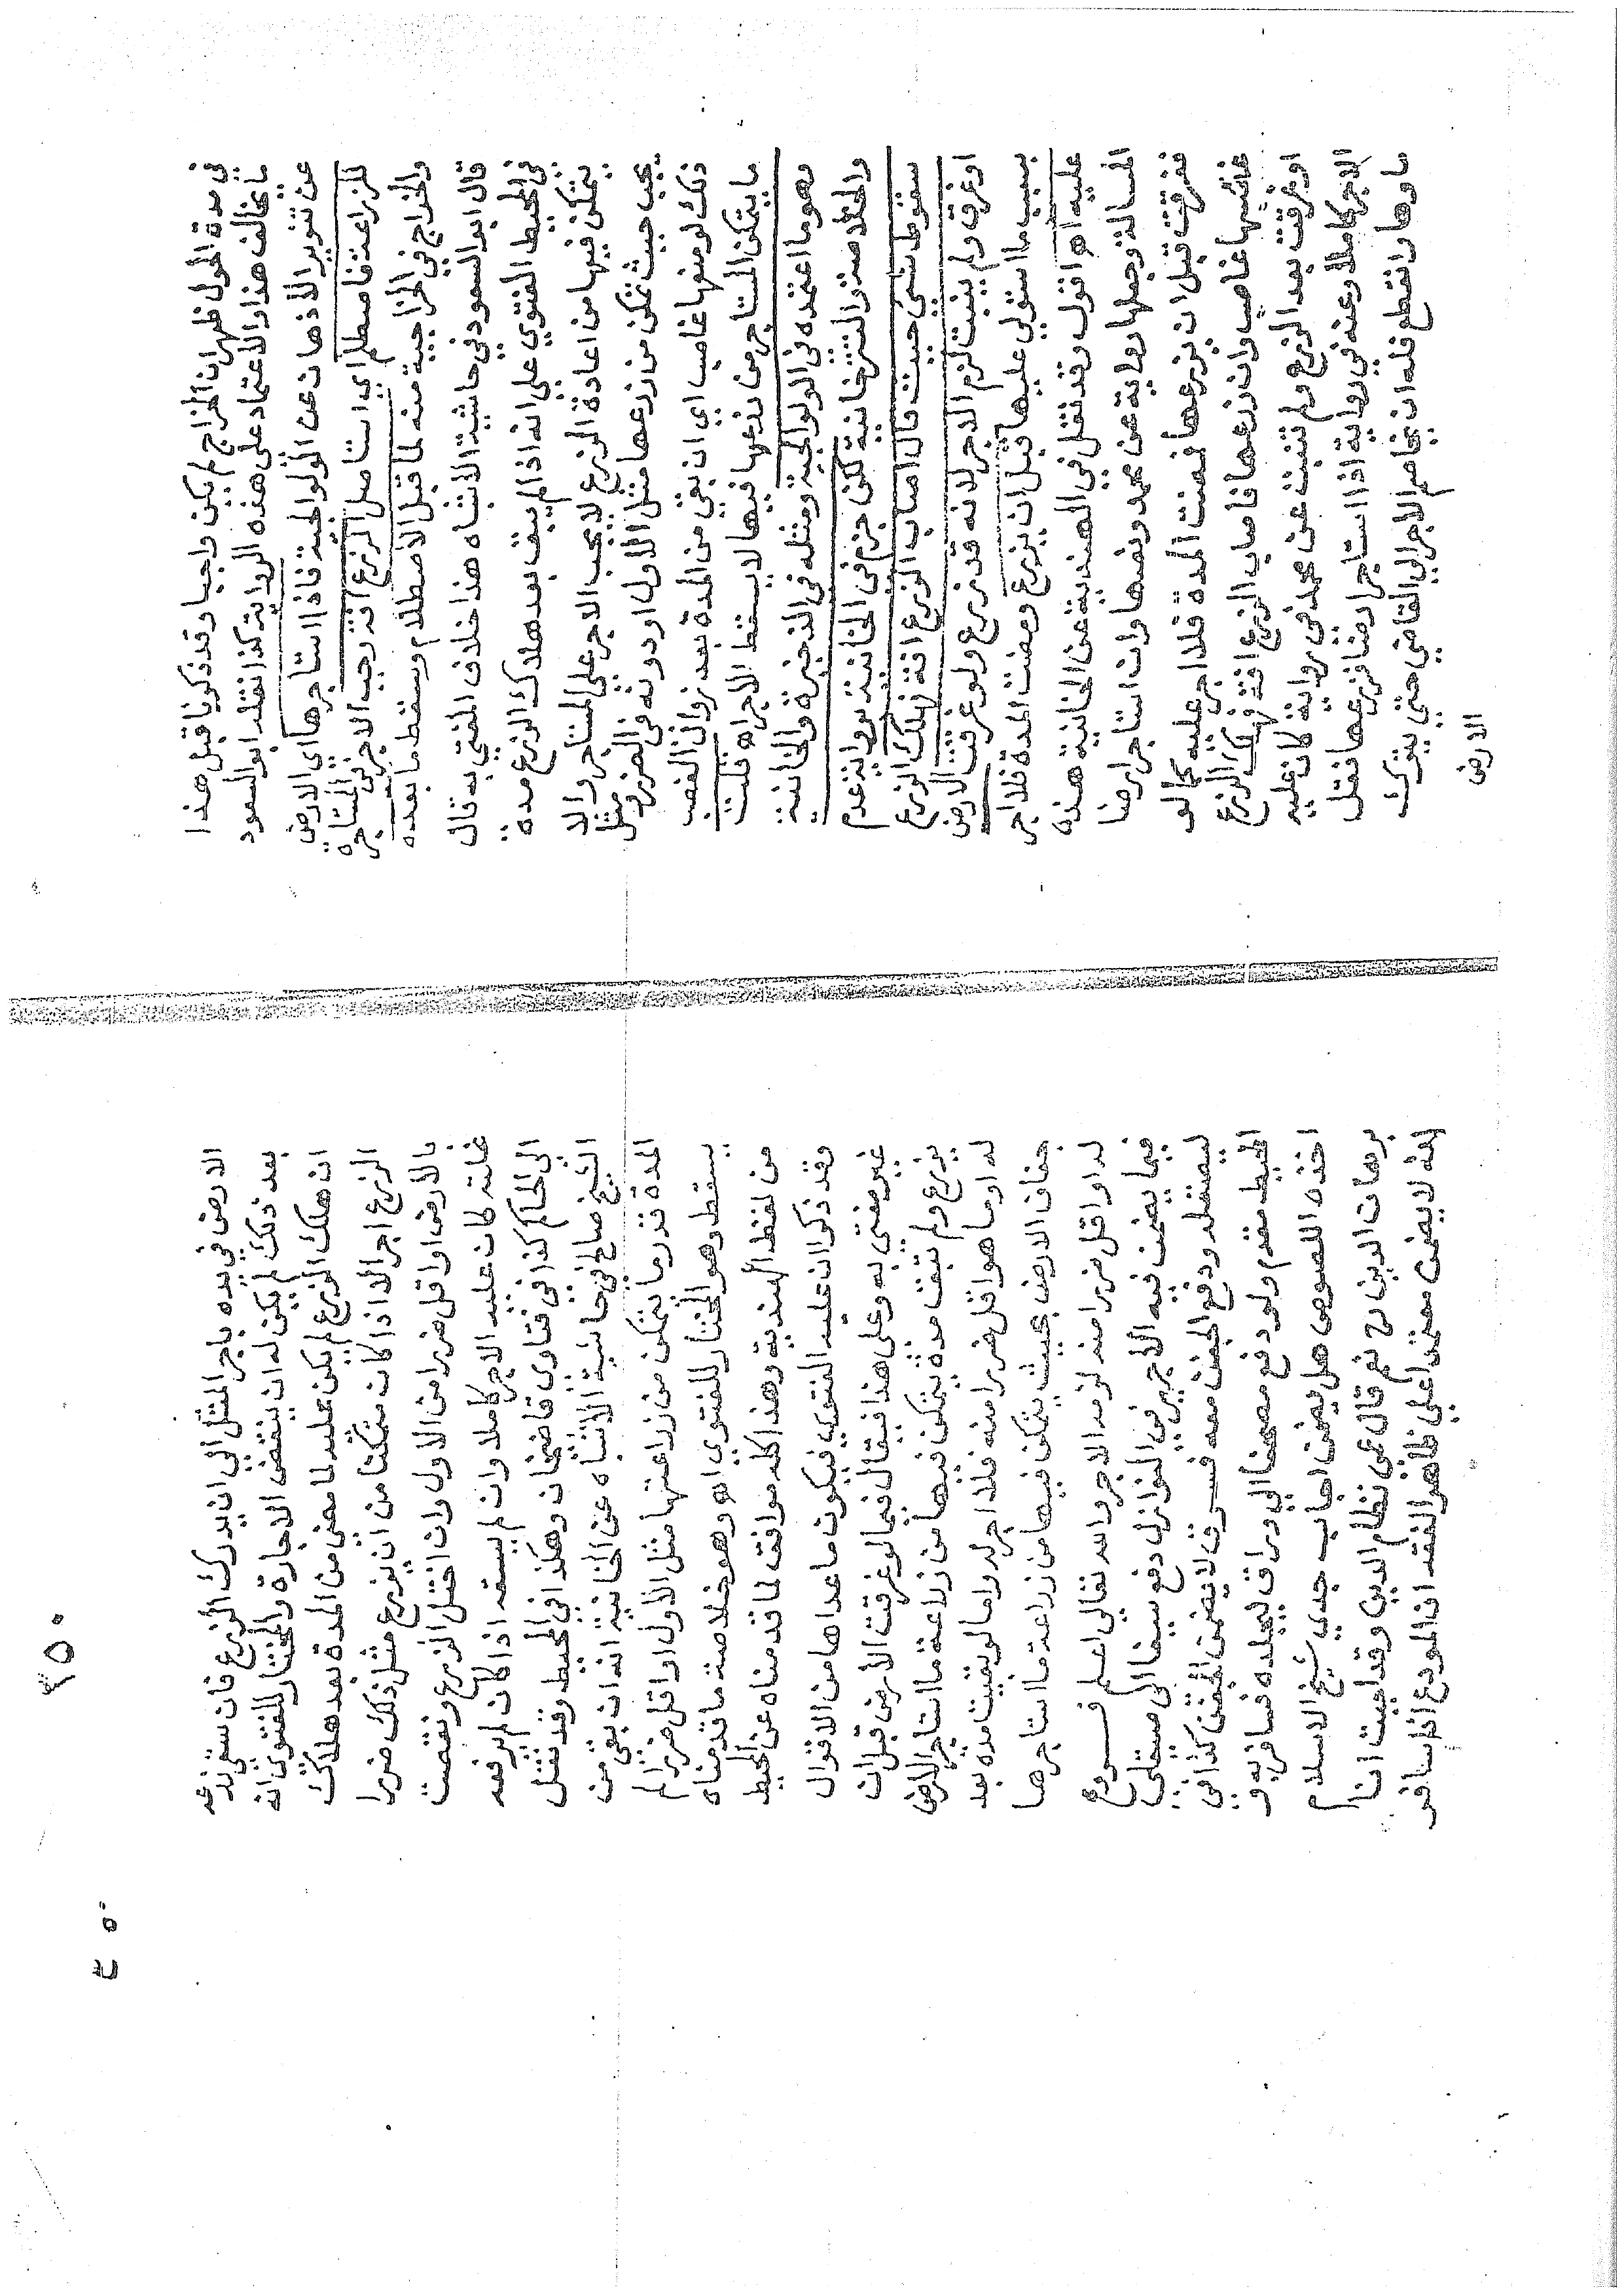 في مدة الحول ظهر ان الخراج لم يكن واجبا وقد ذكرنا قبل هذا
ما يخالف هذا والاعتماد على هذه الرواية كذا نقله ابو السعود
عن تنوير الاذهان عن الولوالجية فاذا استاجرها اي الارض
للزراعة فاصطلم اي استاصل الزرع افة وجب الاجر على المستاجر
والخراج في الخراجية منه لما قبل الاصطلام وسقط ما بعده
قال ابو السعود في حاشية الاشباه هذا خلاف المفتي به قال
في المحيط الفتوي على انه اذا لم يبق بعد هلاك الزرع مدة
يتمكن فيها من اعادة الزرع لا يجب الاجر على المستاجر والا
يجب حيث تمكن من زرعها مثل الاول او دونه في الضرر مثل
ذلك لو منعها غاصب اي ان بقي من المدة بعد زوال الغصب
ما يتمكن المستاجر من زرعها فيها لا يسقط الاجر اه قلت
وهو ما اعتمده في الولوالجية ومثله في الذخيرة والخانية
والخلاصة والتترخانية لكن جزم في الخانية برواية عدم
سقوط شئ حيث قال اصاب الزرع افة فهلك الزرع
او غرق ولم ينبت لزم الاجر لانه قد زرع ولو غرقت الارض
بسبب ما استولي عليها قبل ان يزرع ومضت المدة فلا اجر
عليه اه اقول وقد نقل في الهندية عن الخانية هذه
المسالة وجعلها رواية عن محمد ونصها وان استاجر ارضا
فغرقت قبل ان يزرعها فمضت المدة فلا اجر عليه كما لو
غصبها غاصب وان زرعها فاصاب الزرع افة فهلك الزرع
او غرقت بعد الزرع ولم تنبت عن محمد في رواية كان عليه
الاجر كاملا وعنه في رواية اذا استاجر ارضا فزرعها فقل
ماوها وانقطع فله ان يخاصم الاجر الي القاضي حتي يترك
الارض
٤٥٠
الارض في يده باجر المثل الي ان يدرك الزرع فان سقي زرعه
بعد ذلك لم يكن له ان ينقض الاجارة والمختار للفتوى انه
ان هلك الزرع لم يكن عليه لما مضي من المدة بعد هلاك
الزرع اجر الا اذا كان متمكنا من ان يزرع مثل ذلك ضررا
بالارض او اقل ضررا من الاول وان اختل الزرع ونقصت
غلته كان عليه الاجر كاملا وان لم يسقه اذا كان لم يرفعه
الى الحاكم كذا في فتاوى قاضيخان وهكذا في المحيط وقد نقل
الشيخ صالح في حاشية الاشباه عن الخانية انه ان بقي من
المدة قدر ما يتمكن من زراعتها مثل الاول او اقل ضرر لم
يسقط وهو المختار للفتوى اه وهو خلاصة ما قدمناه
من لفظ الهندية وهذا كله موافق لما قدمناه عن المحيط
وقد ذكر ان عليه الفتوى فيكون ما عداها من الاقوال
غير مفتى به وعلى هذا فيقال فيما لو غرقت الارض قبل ان
يزرع ولم تبق مدة يتمكن فيها من زراعة ما استاجر الارض
له او ما هو اقل ضررا منه فلا اجر له واما لو بقيت مده بعد
جفاف الارض بحيث يتمكن فيها من زراعة ما استاجرها
له او اقل ضررا منه لزمه الاجر والله تعالى اعلم فروع
فيما يضمن فيه الاجير في النوازل دفع سيفا الى صيقلي
ليصقله ودفع الجفن معه فسرق لا يضمن الجفن كذا في
المحيط مقدم ولو دفع مصحفا الي وراق ليجلده فسافر به و
اخذه اللصوص هل يضمن اجاب جدي شيخ الاسلام
برهان الدين رح نعم قال عمى نظام الدين وقد اجبت انا
انه لا يضمن معتمدا علي ظاهر الفقه ان المودع اذا سافر
٤٥